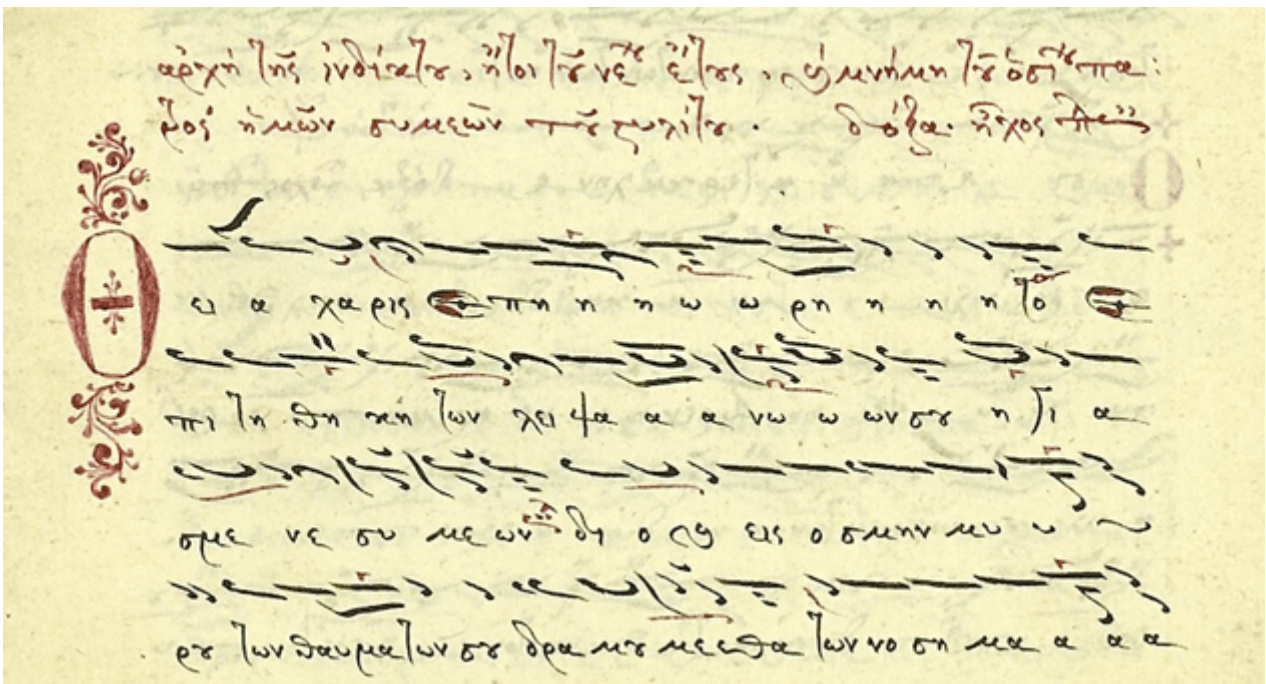 ἀρχὴ τῆς ἰνδίκτου, ἤτοι τοῦ νέου ἔτους, καὶ μνήμη τοῦ ὁσίου πα:
τρὸς ἡμῶν συμεὼν τοῦ στυλίτου. δόξα. ἦχος
Θ ει α χα ρις πη η η ω ω ρη η η η το
πι τη θη κη των λει ψα α α νω ω ων σου η γι α
σμε νε συ με ων δι ο και εις ο σμην μυ υ υ
ρου των θαυμα των σου δρα μου με ε θα των νο ση μα α α α